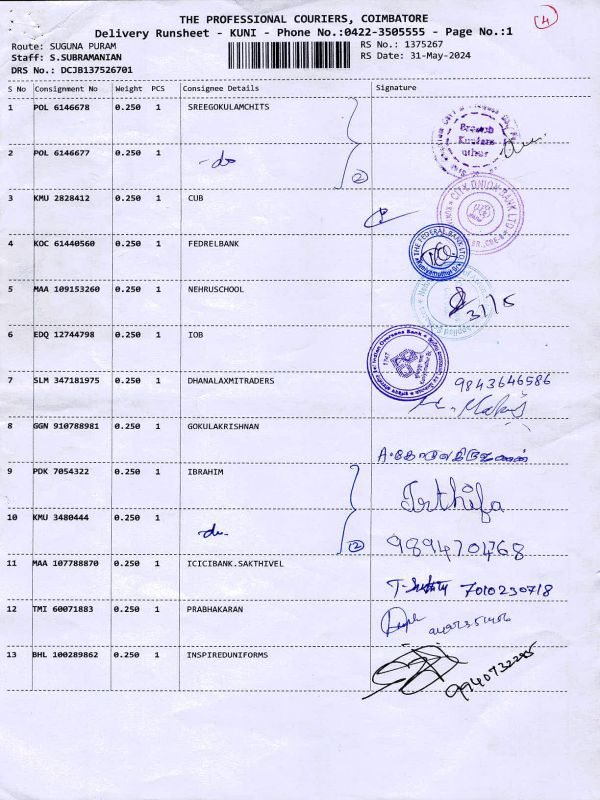 4
THE PROFESSIONAL COURIERS, COIMBATORE
Delivery Runsheet - KUNI - Phone No.:0422-3505555 - Page No.:1
Route: SUGUNA PURAM
RS No.: 1375267
Staff: S.SUBRAMANIAN
RS Date: 31-May-2024
DRS No.: DCJB137526701
S No Consignment No Weight PCS Consignee Details Signature
1 POL 6146678 0.250 1 SREEGOKULAMCHITS
2 POL 6146677 0.250 1 -do 2
3 KMU 2828412 0.250 1 CUB
CITY UNION BANK LTD
4 KOC 61440560 0.250 1 FEDRELBANK
THE FEDERAL BANK LTD
5 MAA 109153260 0.250 1 NEHRUSCHOOL
31/5
6 EDQ 12744798 0.250 1 IOB
Indian Overseas Bank
7 SLM 347181975 0.250 1 DHANALAXMITRADERS 9843646586
8 GGN 910788981 0.250 1 GOKULAKRISHNAN
9 PDK 7054322 0.250 1 IBRAHIM Irthifa
10 KMU 3480444 0.250 1 -do- 2 9894701768
11 MAA 107788870 0.250 1 ICICIBANK.SAKTHIVEL 7010230718
12 TMI 60071883 0.250 1 PRABHAKARAN
13 BHL 100289862 0.250 1 INSPIREDUNIFORMS